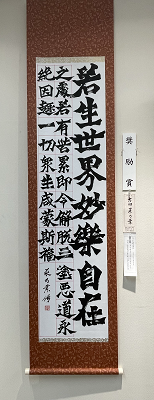 若生世界妙樂自在
之處若有世累即令解脱三塗惡道永
絶因趣一切衆生咸蒙斯福
奨励賞